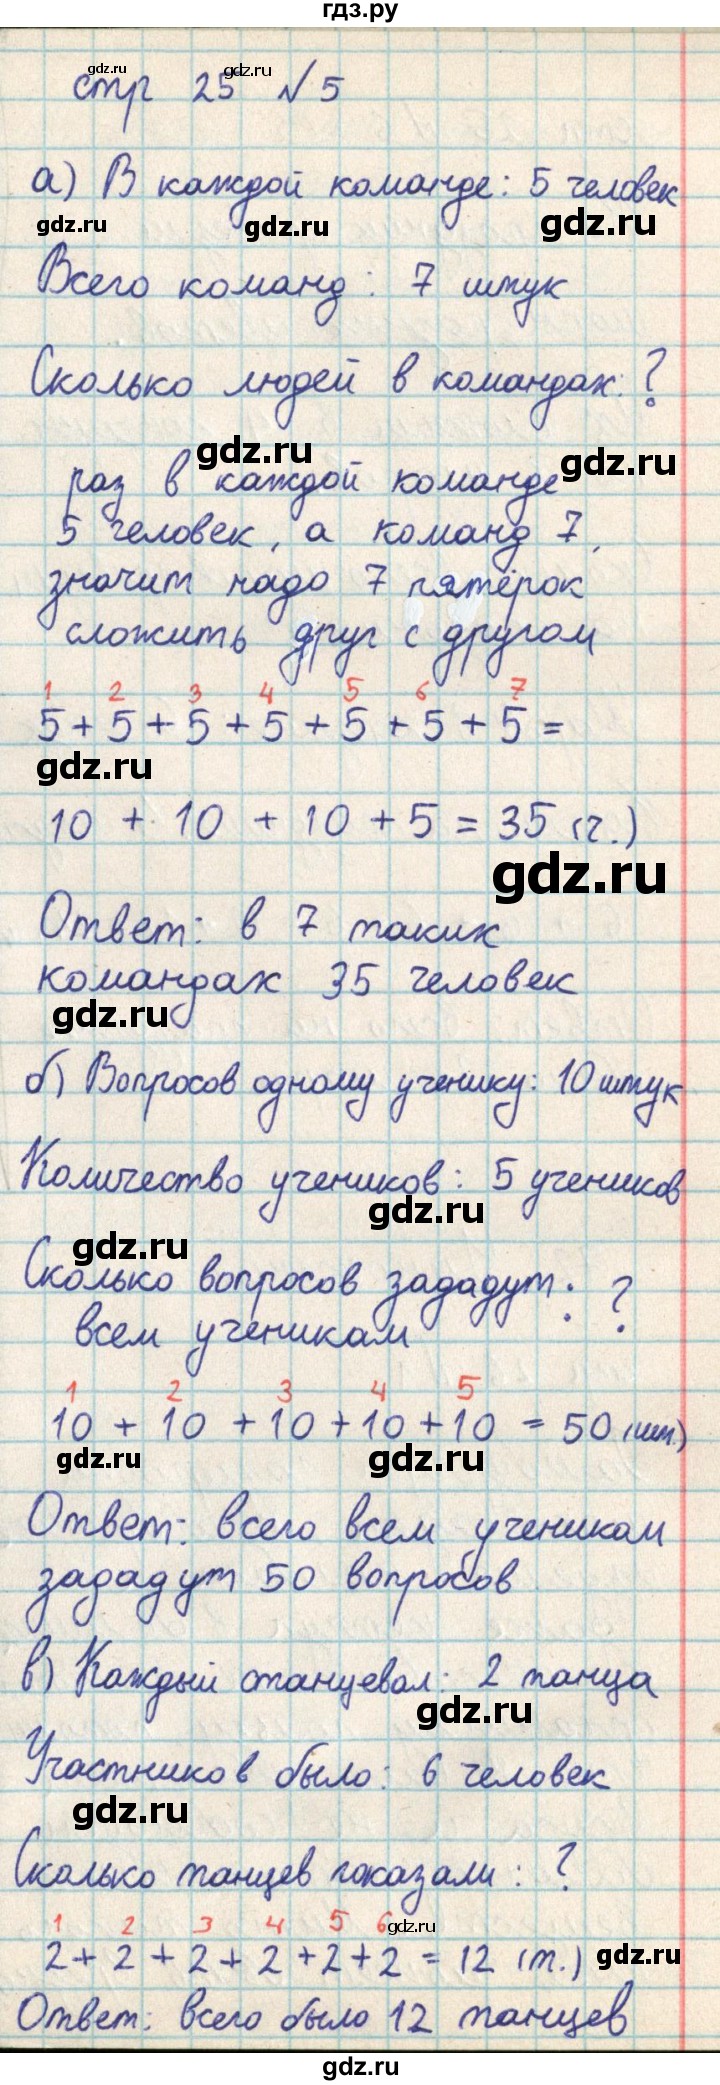 гдз.ру
стр 25 №5
а) В каждой команде: 5 человек
Всего команд: 7 штук
Сколько людей в командах: ?
раз в каждой команде
5 человек, а команд 7,
значит надо 7 пятёрок
сложить друг с другом
1 2 3 4 5 6 7
5 + 5 + 5 + 5 + 5 + 5 + 5 =
10 + 10 + 10 + 5 = 35 (ч.)
Ответ: в 7 таких
командах 35 человек
б) Вопросов одному ученику: 10 штук
Количество учеников: 5 учеников
Сколько вопросов зададут : ?
всем ученикам
1 2 3 4 5
10 + 10 + 10 + 10 + 10 = 50 (шт.)
Ответ: всего всем ученикам
зададут 50 вопросов
в) Каждый станцевал: 2 танца
Участников было: 6 человек
Сколько танцев показали: ?
1 2 3 4 5 6
2 + 2 + 2 + 2 + 2 + 2 = 12 (т.)
Ответ: всего было 12 танцев
gdz.ru